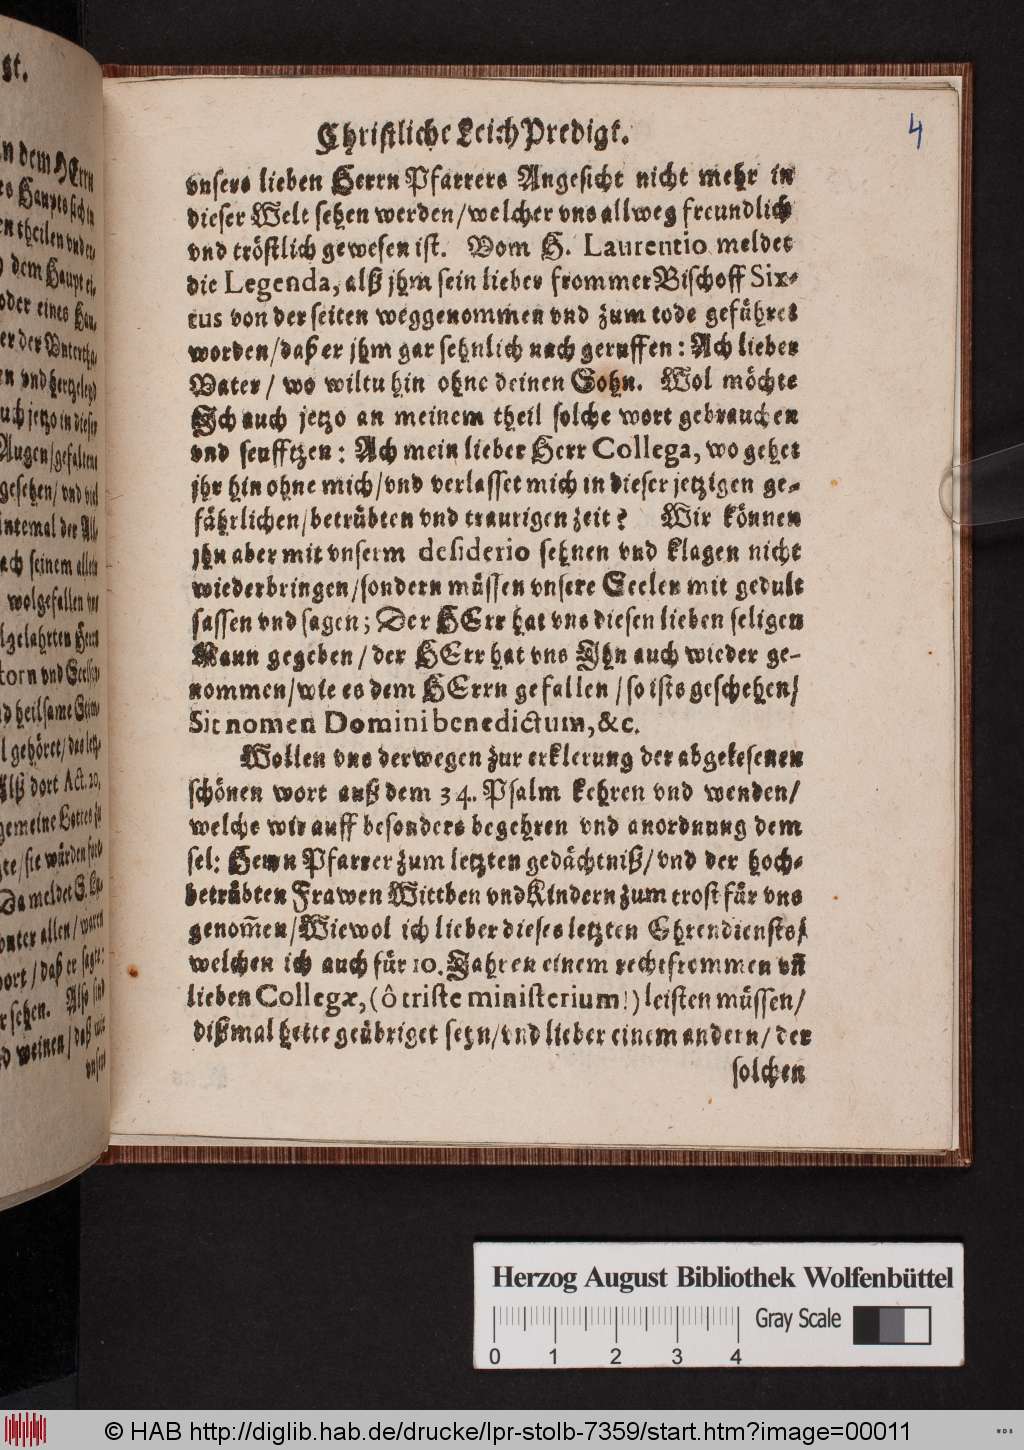 gt.
in dem HErrn
es Haupts sich in
en theilen vnd ei-
dem Haupt ei-
oder eines Hau-
er der Vntertha-
en vnd hertzeleyd
uch jetzo in dieser
Augen/gefallene
gesehen/vnd viel
intemal der All-
ach seinem allein
wolgefallen vns
lgelahrten Herrn
torn vnd Seelsor-
d heilsame Stim-
l gehöret/das letz-
Alß dort Act. 20,
gemeine Gottes zu
gte/sie würden fort-
Da meldet S. Lu-
vnter allen/waren
wort/daß er sagte:
r sehen. Also sind
nd weinen/daß wir
vnsers
4
Christliche LeichPredigt.
vnsers lieben Herrn Pfarrers Angesicht nicht mehr in
dieser Welt sehen werden/welcher vns allweg freundlich
vnd tröstlich gewesen ist. Vom H. Laurentio meldet
die Legenda, alß jhm sein lieber frommer Bischoff Six-
tus von der seiten weggenommen vnd zum tode geführet
worden/daß er jhm gar sehnlich nach geruffen: Ach lieber
Vater/ wo wiltu hin ohne deinen Sohn. Wol möchte
Ich auch jetzo an meinem theil solche wort gebrauchen
vnd seufftzen: Ach mein lieber Herr Collega, wo gehet
jhr hin ohne mich/vnd verlasset mich in dieser jetzigen ge-
fährlichen/betrübten vnd traurigen zeit? Wir können
jhn aber mit vnserm desiderio sehnen vnd klagen nicht
wiederbringen/sondern müssen vnsere Seelen mit gedult
fassen vnd sagen; Der HErr hat vns diesen lieben seligen
Mann gegeben/der HErr hat vns Ihn auch wieder ge-
nommen/wie es dem HErrn gefallen/so ists geschehen/
Sit nomen Domini benedictum, &c.
Wollen vns derwegen zur erklerung der abgelesenen
schönen wort auß dem 34. Psalm kehren vnd wenden/
welche wir auff besonders begehren vnd anordnung dem
sel: Herrn Pfarrer zum letzten gedächtniß/vnd der hoch-
betrübten Frawen Wittben vnd Kindern zum trost für vns
genom̄en/Wiewol ich lieber dieses letzten Ehrendiensts/
welchen ich auch für 10. Jahren einem rechtfrommen vn̄
lieben Collegæ, (ô triste ministerium!) leisten müssen/
dißmal hette geübriget seyn/vnd lieber einem andern/ der
solchen
Herzog August Bibliothek Wolfenbüttel
Gray Scale
0 1 2 3 4
© HAB http://diglib.hab.de/drucke/lpr-stolb-7359/start.htm?image=00011